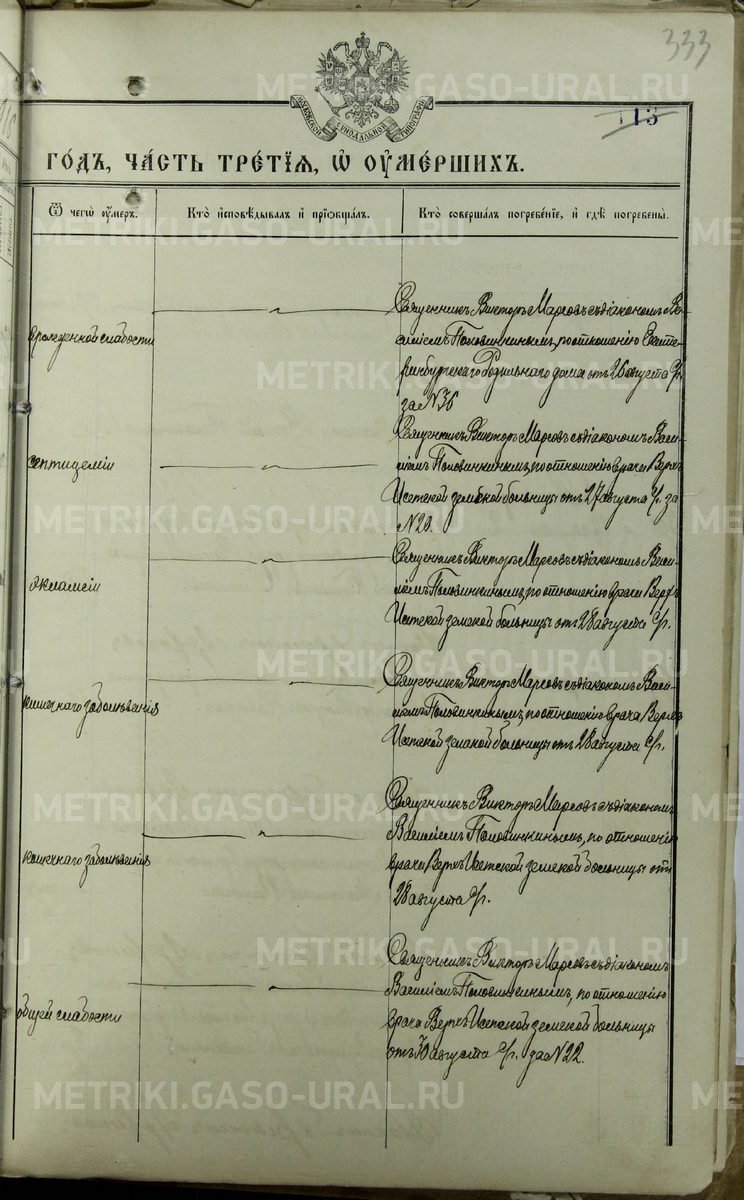 333
113
МОСКОВСКОЙ СИНОДАЛЬНОЙ ТИПОГРАФІИ
METRIKI.GASO-URAL.RU
ГО́ДЪ, ЧА́СТЬ ТРЕ́ТІѦ, Ѡ ОУМЕ́РШИХЪ.
Ѿ чегѡ̀ оу́меръ.
Кто̀ и҆сповѣ́дывалъ и҆ прїѡбща́лъ.
Кто̀ соверша́лъ погребе́нїе, и҆ гдѣ̀ погребены̀.
врожденной слабости
Священникъ Викторъ Марсовъ съ діакономъ Ва-
силіемъ Половинкинымъ, по отношенію Екате-
ринбургскаго Родильнаго дома отъ 26 августа с/г.
за № 36
септицеміи
Священникъ Викторъ Марсовъ съ діакономъ Васи-
ліемъ Половинкинымъ, по отношенію врача Верхъ
Исетской земской больницы отъ 27 августа с/г. за
№ 20.
эклампсіи
Священникъ Викторъ Марсовъ съ діакономъ Васи-
ліемъ Половинкинымъ, по отношенію врача Верхъ
Исетской земской больницы отъ 28 августа с/г.
кишечнаго заболѣванія
Священникъ Викторъ Марсовъ съ діакономъ Васи-
ліемъ Половинкинымъ, по отношенію врача Верхъ
Исетской земской больницы отъ 28 августа с/г.
кишечнаго заболѣванія
Священникъ Викторъ Марсовъ съ діакономъ
Василіемъ Половинкинымъ, по отношенію
врача Верхъ Исетской земской больницы отъ
28 августа с/г.
общей слабости
Священникъ Викторъ Марсовъ съ діакономъ
Василіемъ Половинкинымъ, по отношенію
врача Верхъ Исетской земской больницы
отъ 30 августа с/г. за № 22.